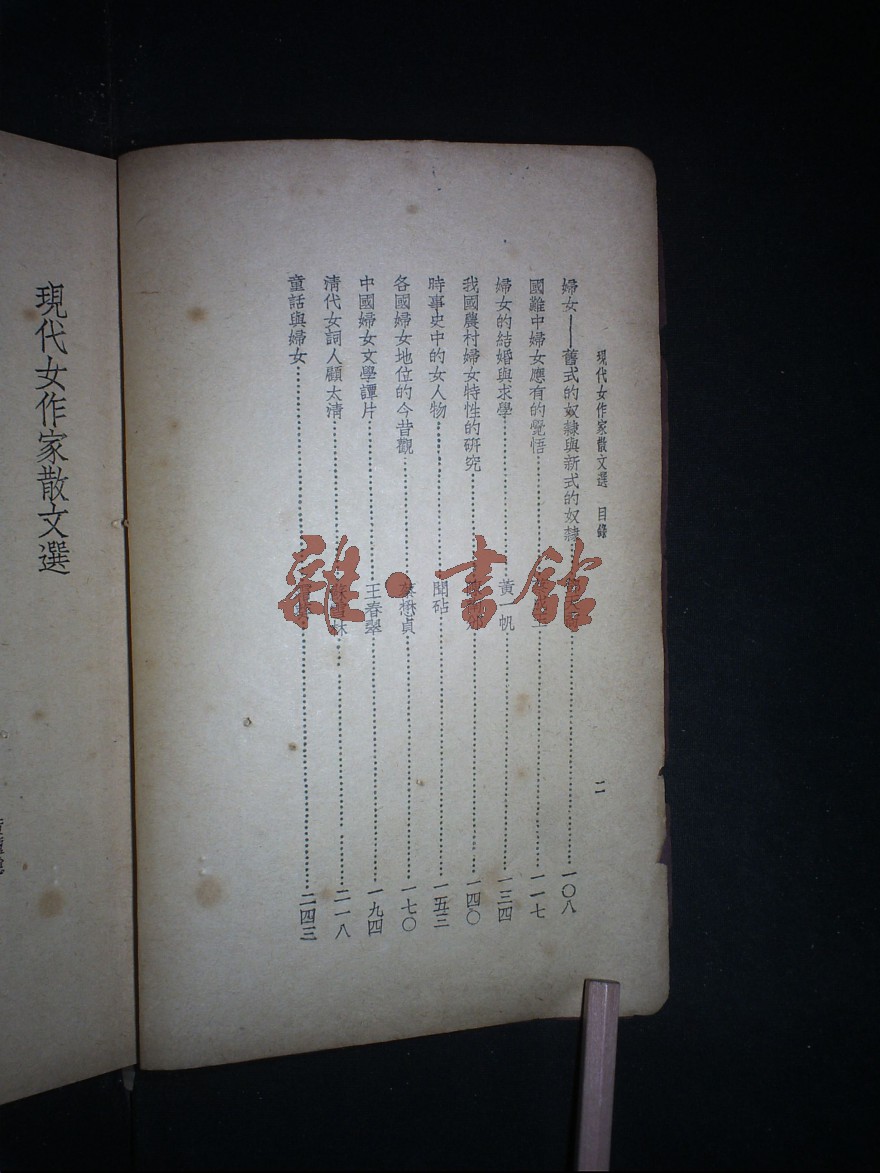 現代女作家散文選　目錄　二
婦女——舊式的奴隸與新式的奴隸……一〇八
國難中婦女應有的覺悟……一一七
婦女的結婚與求學……黃一帆……一三四
我國農村婦女特性的研究……一四〇
時事史中的女人物……聞砧……一五三
各國婦女地位的今昔觀……蔡懋貞……一七〇
中國婦女文學譚片……王春翠……一九四
清代女詞人顧太清……蘇雪林……二一八
童話與婦女……二四三
現代女作家散文選
雜·書館